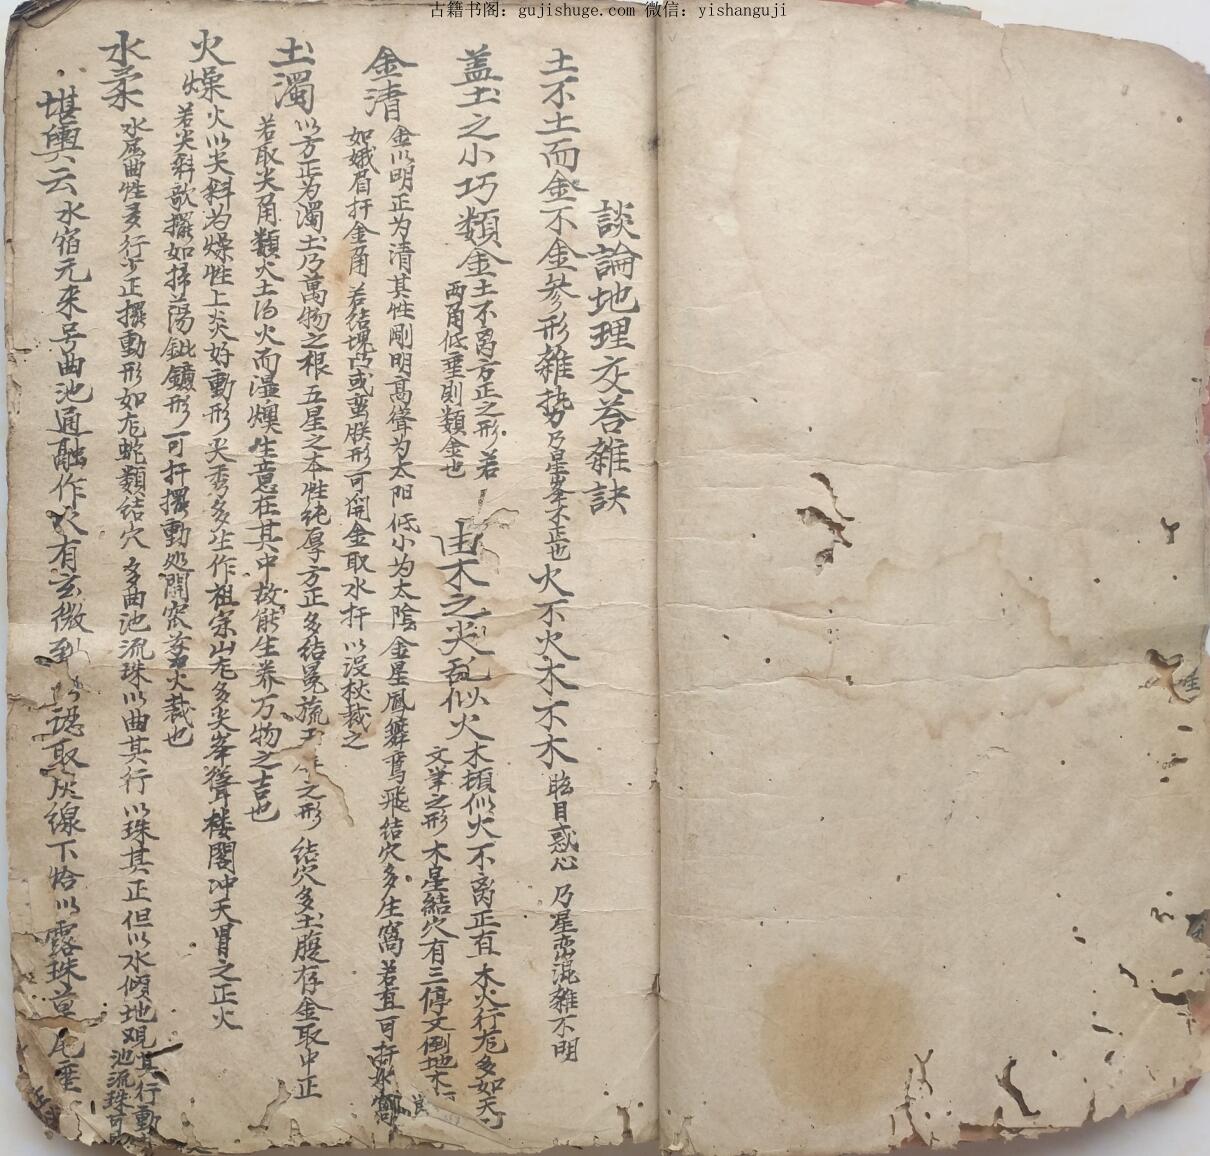 古籍书阁：gujishuge.com 微信：yishanguji
談論地理交荅雜訣
土不土而金不金参形雜势乃星峯不正也火不火木不木眩目惑心乃星峦混雜不明
盖土之小巧類金土不离方正之形若
两角低垂則類金也
由木之尖乱似火木頭似火不离正直木火行龙多如天
文筆之形木星結穴有三停文倒地木
金清金以明正为清其性剛明高聳为太阳低小为太陰金星鳳舞鸾飛結穴多生窩若直可
如娥眉扦金角若结塊凸或蛮朕形可開金取水扦以没杖裁之
土濁以方正为濁土乃萬物之根五星之本性純厚方正多结冕旒之形结穴多土腹存金取中正
若取尖角類火土得火而温燠生意在其中故能生养万物之吉也
火燥火以尖斜为燥性上炎好動形尖秀多生作祖宗山龙多尖峯聳楼閣冲天胃之正火
若尖斜歌擺如掃蕩鈚鑽形可扦擺動处開窩剪火裁也
水柔水屈曲性多行少正擺動形如龙蛇類结穴多曲池流珠以曲其行以珠其正但以水傾地观其行動
池流珠可
堪輿云水宿元来号曲池通融作穴有玄微認取灰線下恰以露珠草尾垂